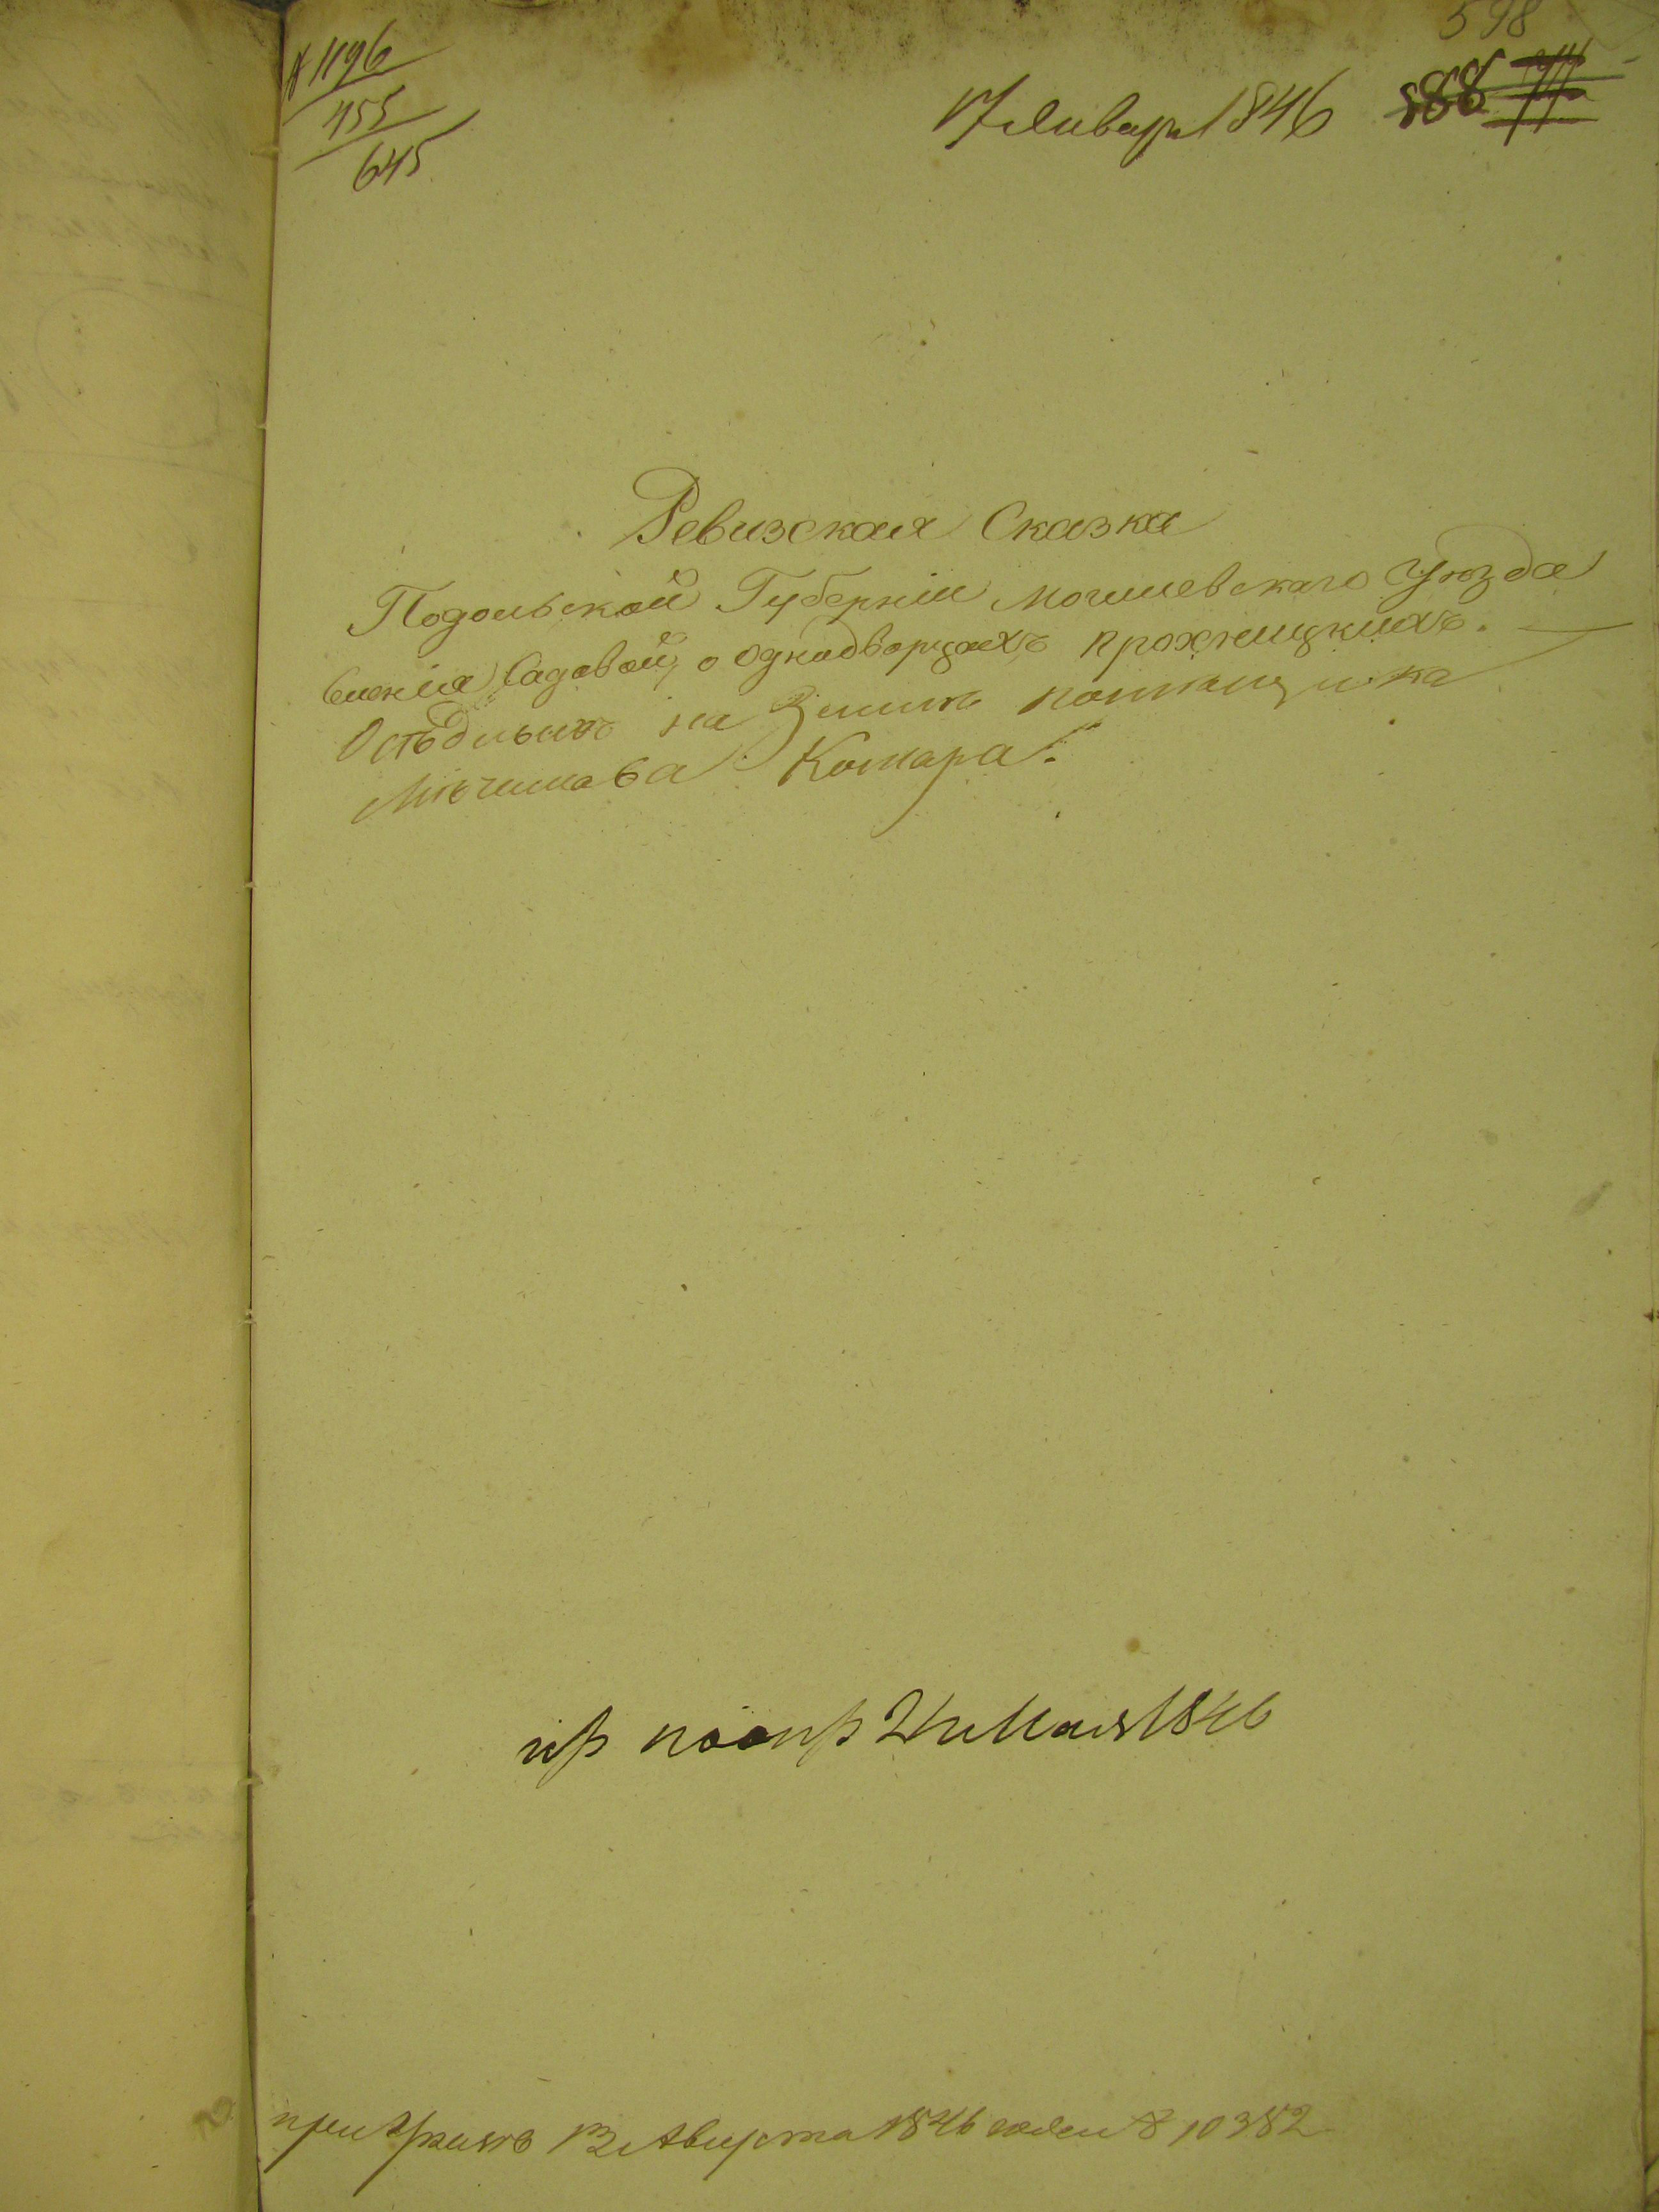 № 1196
455
645
598
17 Января 1846 588
Ревизская Сказка
Подольской Губерніи могилевскаго Уѣзда
Селенія Садовой, о однодворцахъ Прохницкихъ.
Осѣдлыхъ на Землѣ помѣщика
Мечислава Комара.
Мая 1846
13 Августа 1846 года № 10382